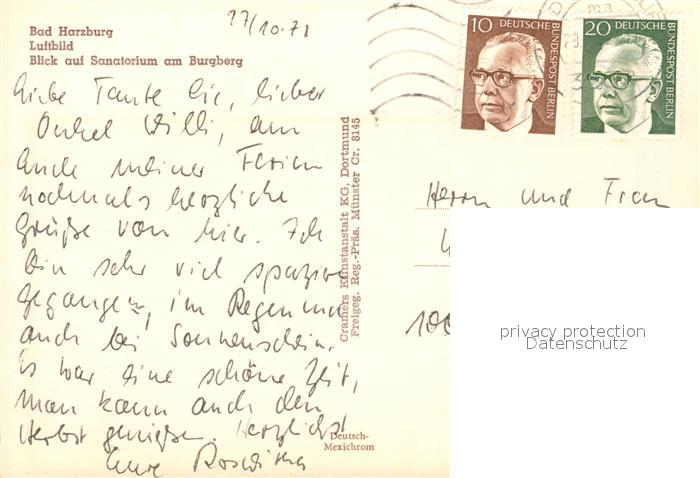 27/10.71
Bad Harzburg
Luftbild
Blick auf Sanatorium am Burgberg
Liebe Tante Cie, lieber
Onkel Willi, am
Ende meiner Ferien
nochmals herzliche
Grüße von hier. Ich
bin sehr viel spazieren
gegangen, im Regen und
auch bei Sonnenschein.
Es war eine schöne Zeit,
man kann auch den
Herbst genießen. Herzlichst
Eure Roswitha
Cramers Kunstanstalt KG, Dortmund
Freigeg. Reg.-Präs. Münster Cr. 8145
Deutsch-
Mexichrom
10 DEUTSCHE BUNDESPOST BERLIN
20 DEUTSCHE BUNDESPOST BERLIN
Herrn und Frau
100
privacy protection
Datenschutz